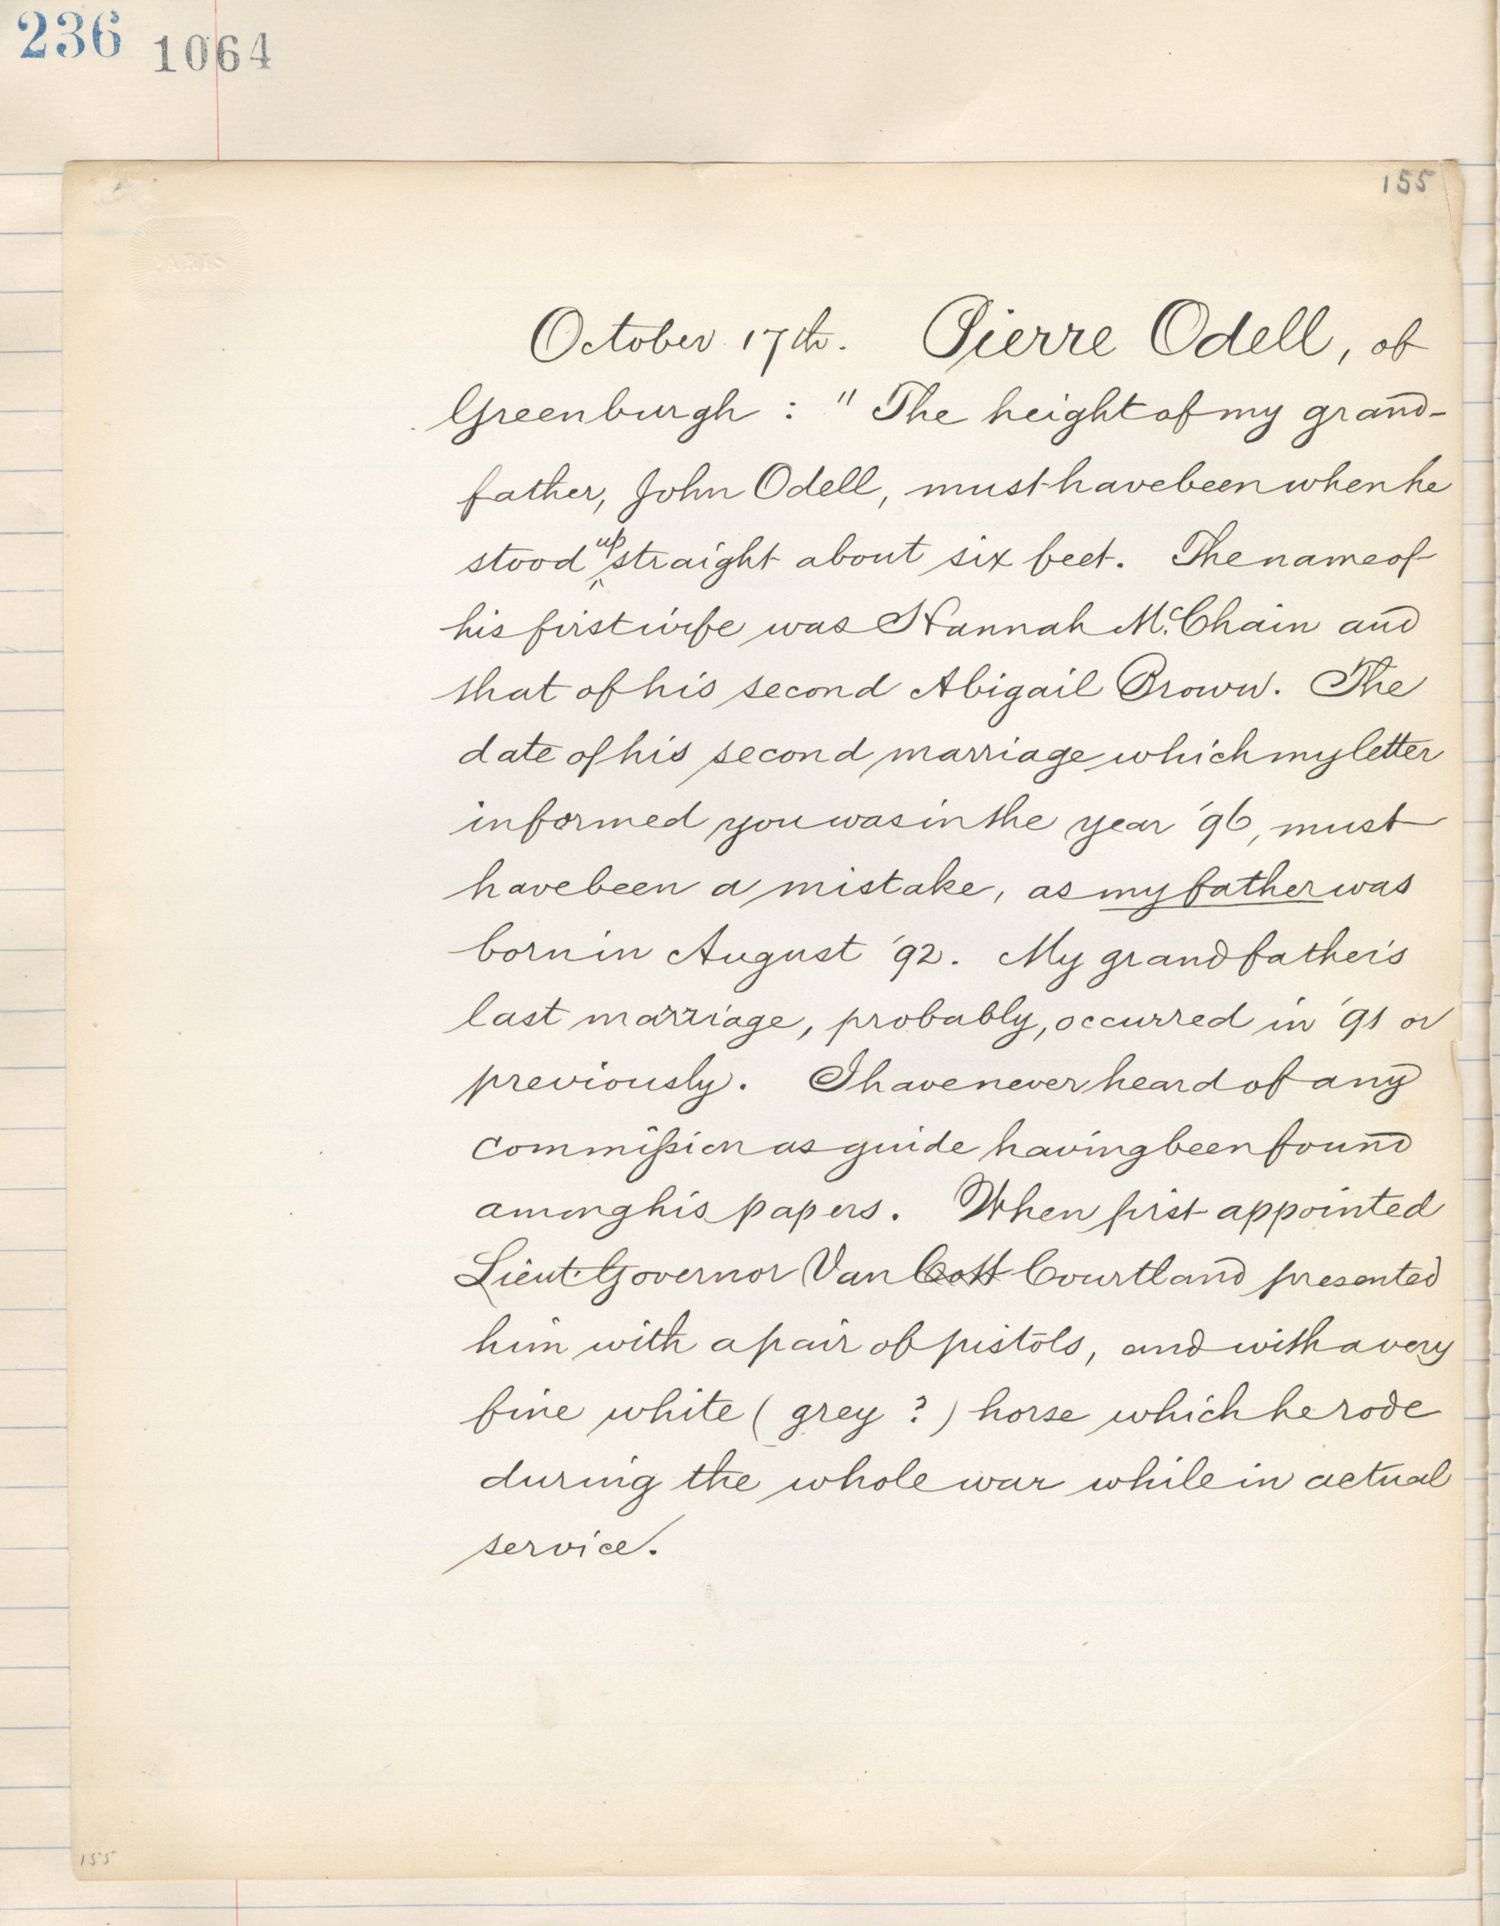 236 1064
155
PARIS
October 17th. Pierre Odell, of
Greenburgh : "The height of my grand-
father, John Odell, must have been when he
stood up straight about six feet. The name of
his first wife was Hannah McChain and
that of his second Abigail Brown. The
date of his second marriage which my letter
informed you was in the year '96, must
have been a mistake, as my father was
born in August '92. My grandfather's
last marriage, probably, occurred in '91 or
previously. I have never heard of any
commission as guide having been found
among his papers. When first appointed
Lieut. Governor Van Cott Courtland presented
him with a pair of pistols, and with a very
fine white (grey ?) horse which he rode
during the whole war while in actual
service.
155